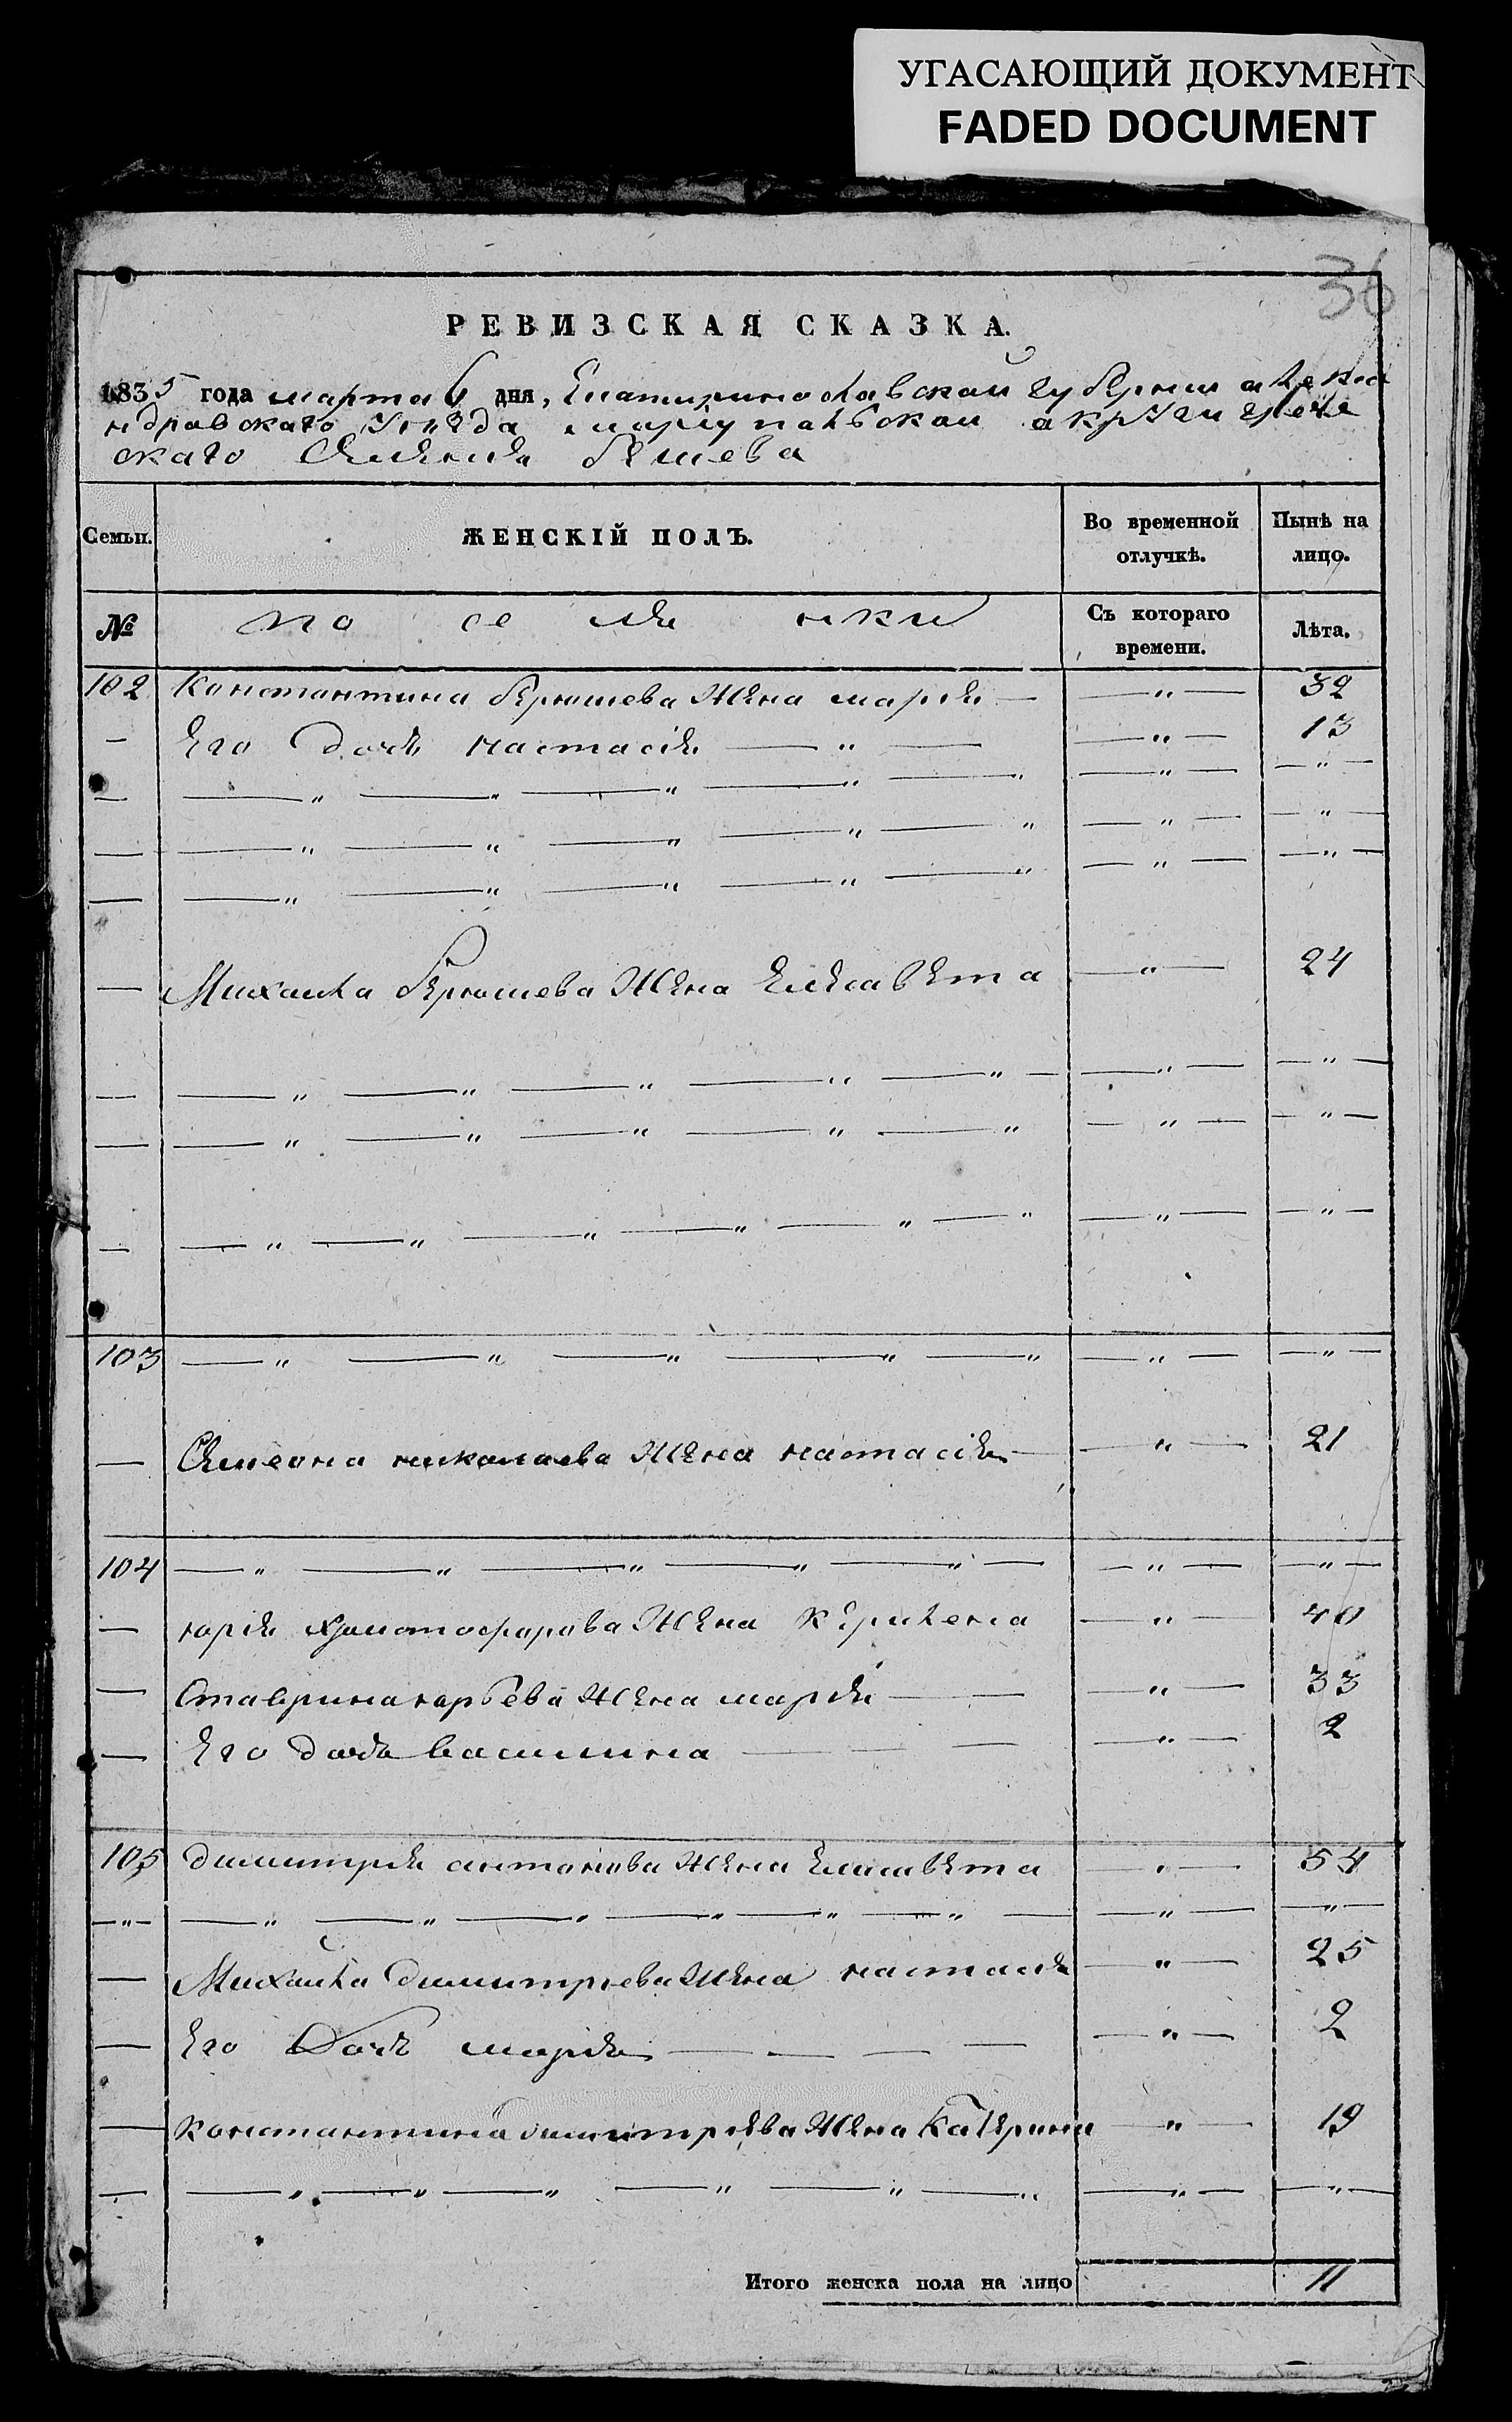 УГАСАЮЩИЙ ДОКУМЕНТ
FADED DOCUMENT
36
РЕВИЗСКАЯ СКАЗКА.
1835 года марта 6 дня, Екатиринославской губернии алекса
ндравскаго уезда мариупальскаи акруги грече
скаго Селения бешева
Семьи. ЖЕНСКІЙ ПОЛЪ. Во временной отлучкѣ. Нынѣ на лицо.
№ по се ля нки Съ котораго времени. Лѣта.
102 Константина бе��юшева Жена мария — — " — 32
— Его дочь настасія — " — — " — 13
— Михаила Жена Елисавета — " — 24
103 — " — " — " — " — " — " — — " —
— Семеона николаева Жена настасия — — " — 21
104 — " — " — " — " — " — — " — — " —
— юрия христофорова Жена — " — 40
— Ставрина юрьева Жена мария — — " — 33
— Его дочь василина — — — — " — 2
105 димитрия антонова Жена Елисавета — " — 54
— Михаила димитриева Жена настасия — " — 25
— Его Дочь мария — — — — — " — 2
— константина димитриева Жена Катерина — " — 19
Итого женска пола на лицо 11